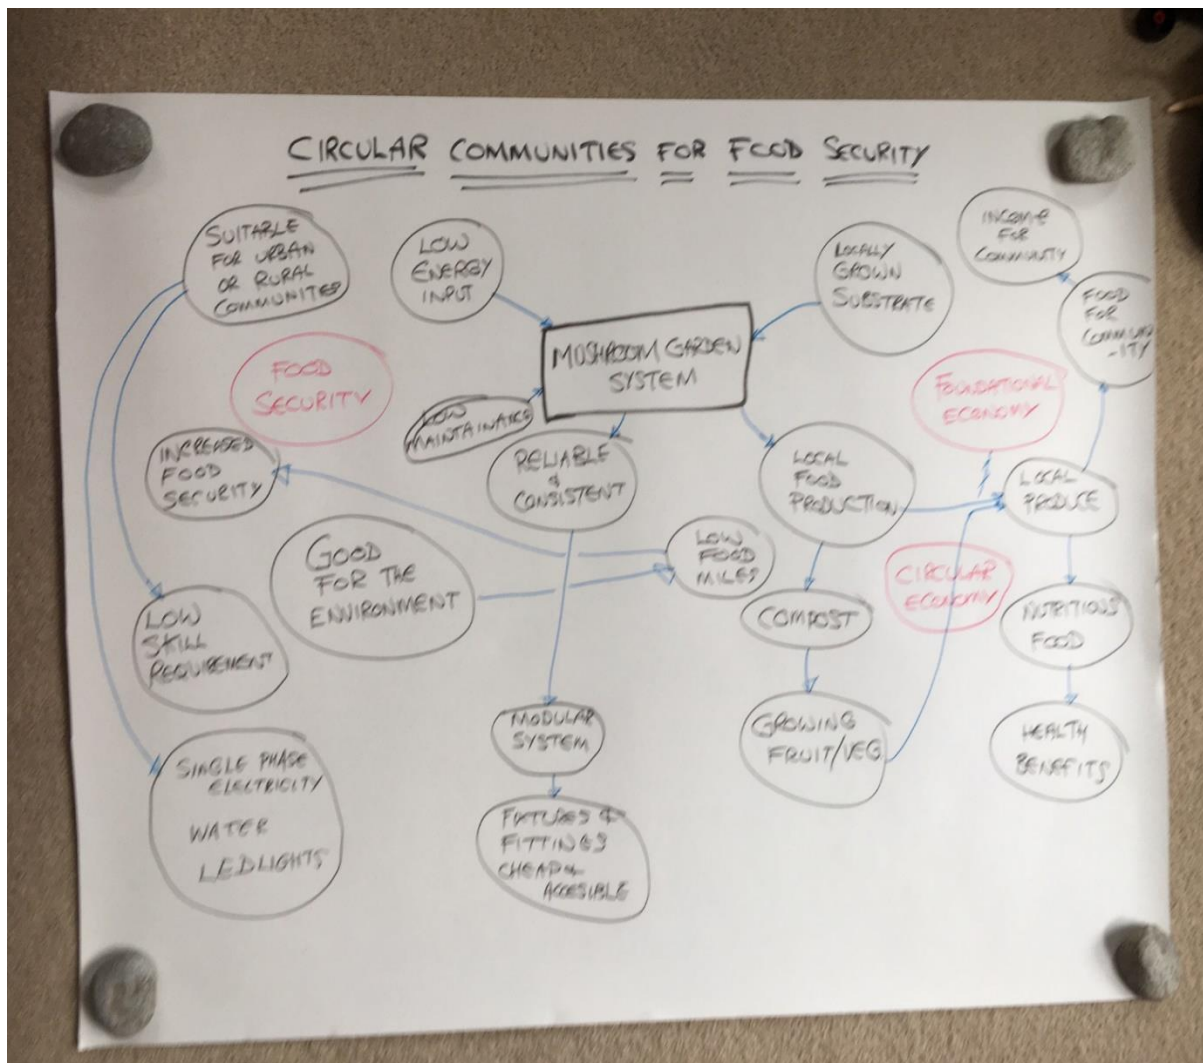 CIRCULAR COMMUNITIES FOR FOOD SECURITY
SUITABLE
FOR URBAN
OR RURAL
COMMUNITIES
LOW
ENERGY
INPUT
LOCALLY
GROWN
SUBSTRATE
INCOME
FOR
COMMUNITY
FOOD
FOR
COMMUN
-ITY
MUSHROOM GARDEN
SYSTEM
FOOD
SECURITY
FOUNDATIONAL
ECONOMY
LOW
MAINTAINANCE
INCREASED
FOOD
SECURITY
RELIABLE
&
CONSISTENT
LOCAL
FOOD
PRODUCTION
LOCAL
PRODUCE
GOOD
FOR THE
ENVIRONMENT
LOW
FOOD
MILES
CIRCULAR
ECONOMY
LOW
SKILL
REQUIREMENT
COMPOST
NUTRITIOUS
FOOD
MODULAR
SYSTEM
GROWING
FRUIT/VEG
HEALTH
BENEFITS
SINGLE PHASE
ELECTRICITY
WATER
LED LIGHTS
FIXTURES &
FITTINGS
CHEAP &
ACCESIBLE